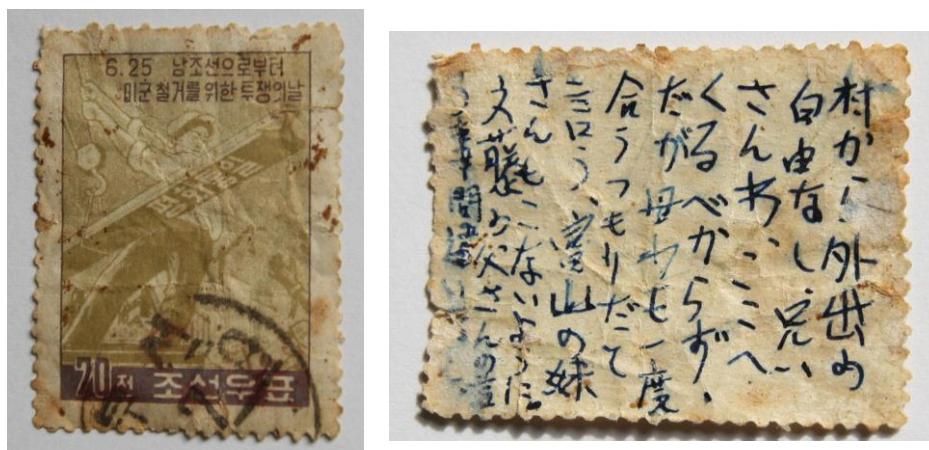 6.25 남조선으로부터
미군 철거를 위한 투쟁의날
평화통일
전 조선우표
村から外出の
自由なし、兄い
さんわ、ここへ
くるべからず、
だが母わも一度
合うつもりだて
言う、富山の妹
さんもこないように。
お父さんの